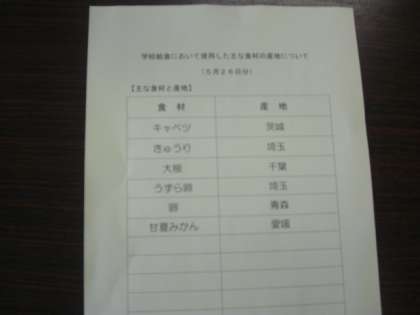 学校給食において使用した主な食材の産地について
(5月26日分)
【主な食材と産地】
食 材 産 地
キャベツ 茨城
きゅうり 埼玉
大根 千葉
うずら卵 埼玉
卵 青森
甘夏みかん 愛媛